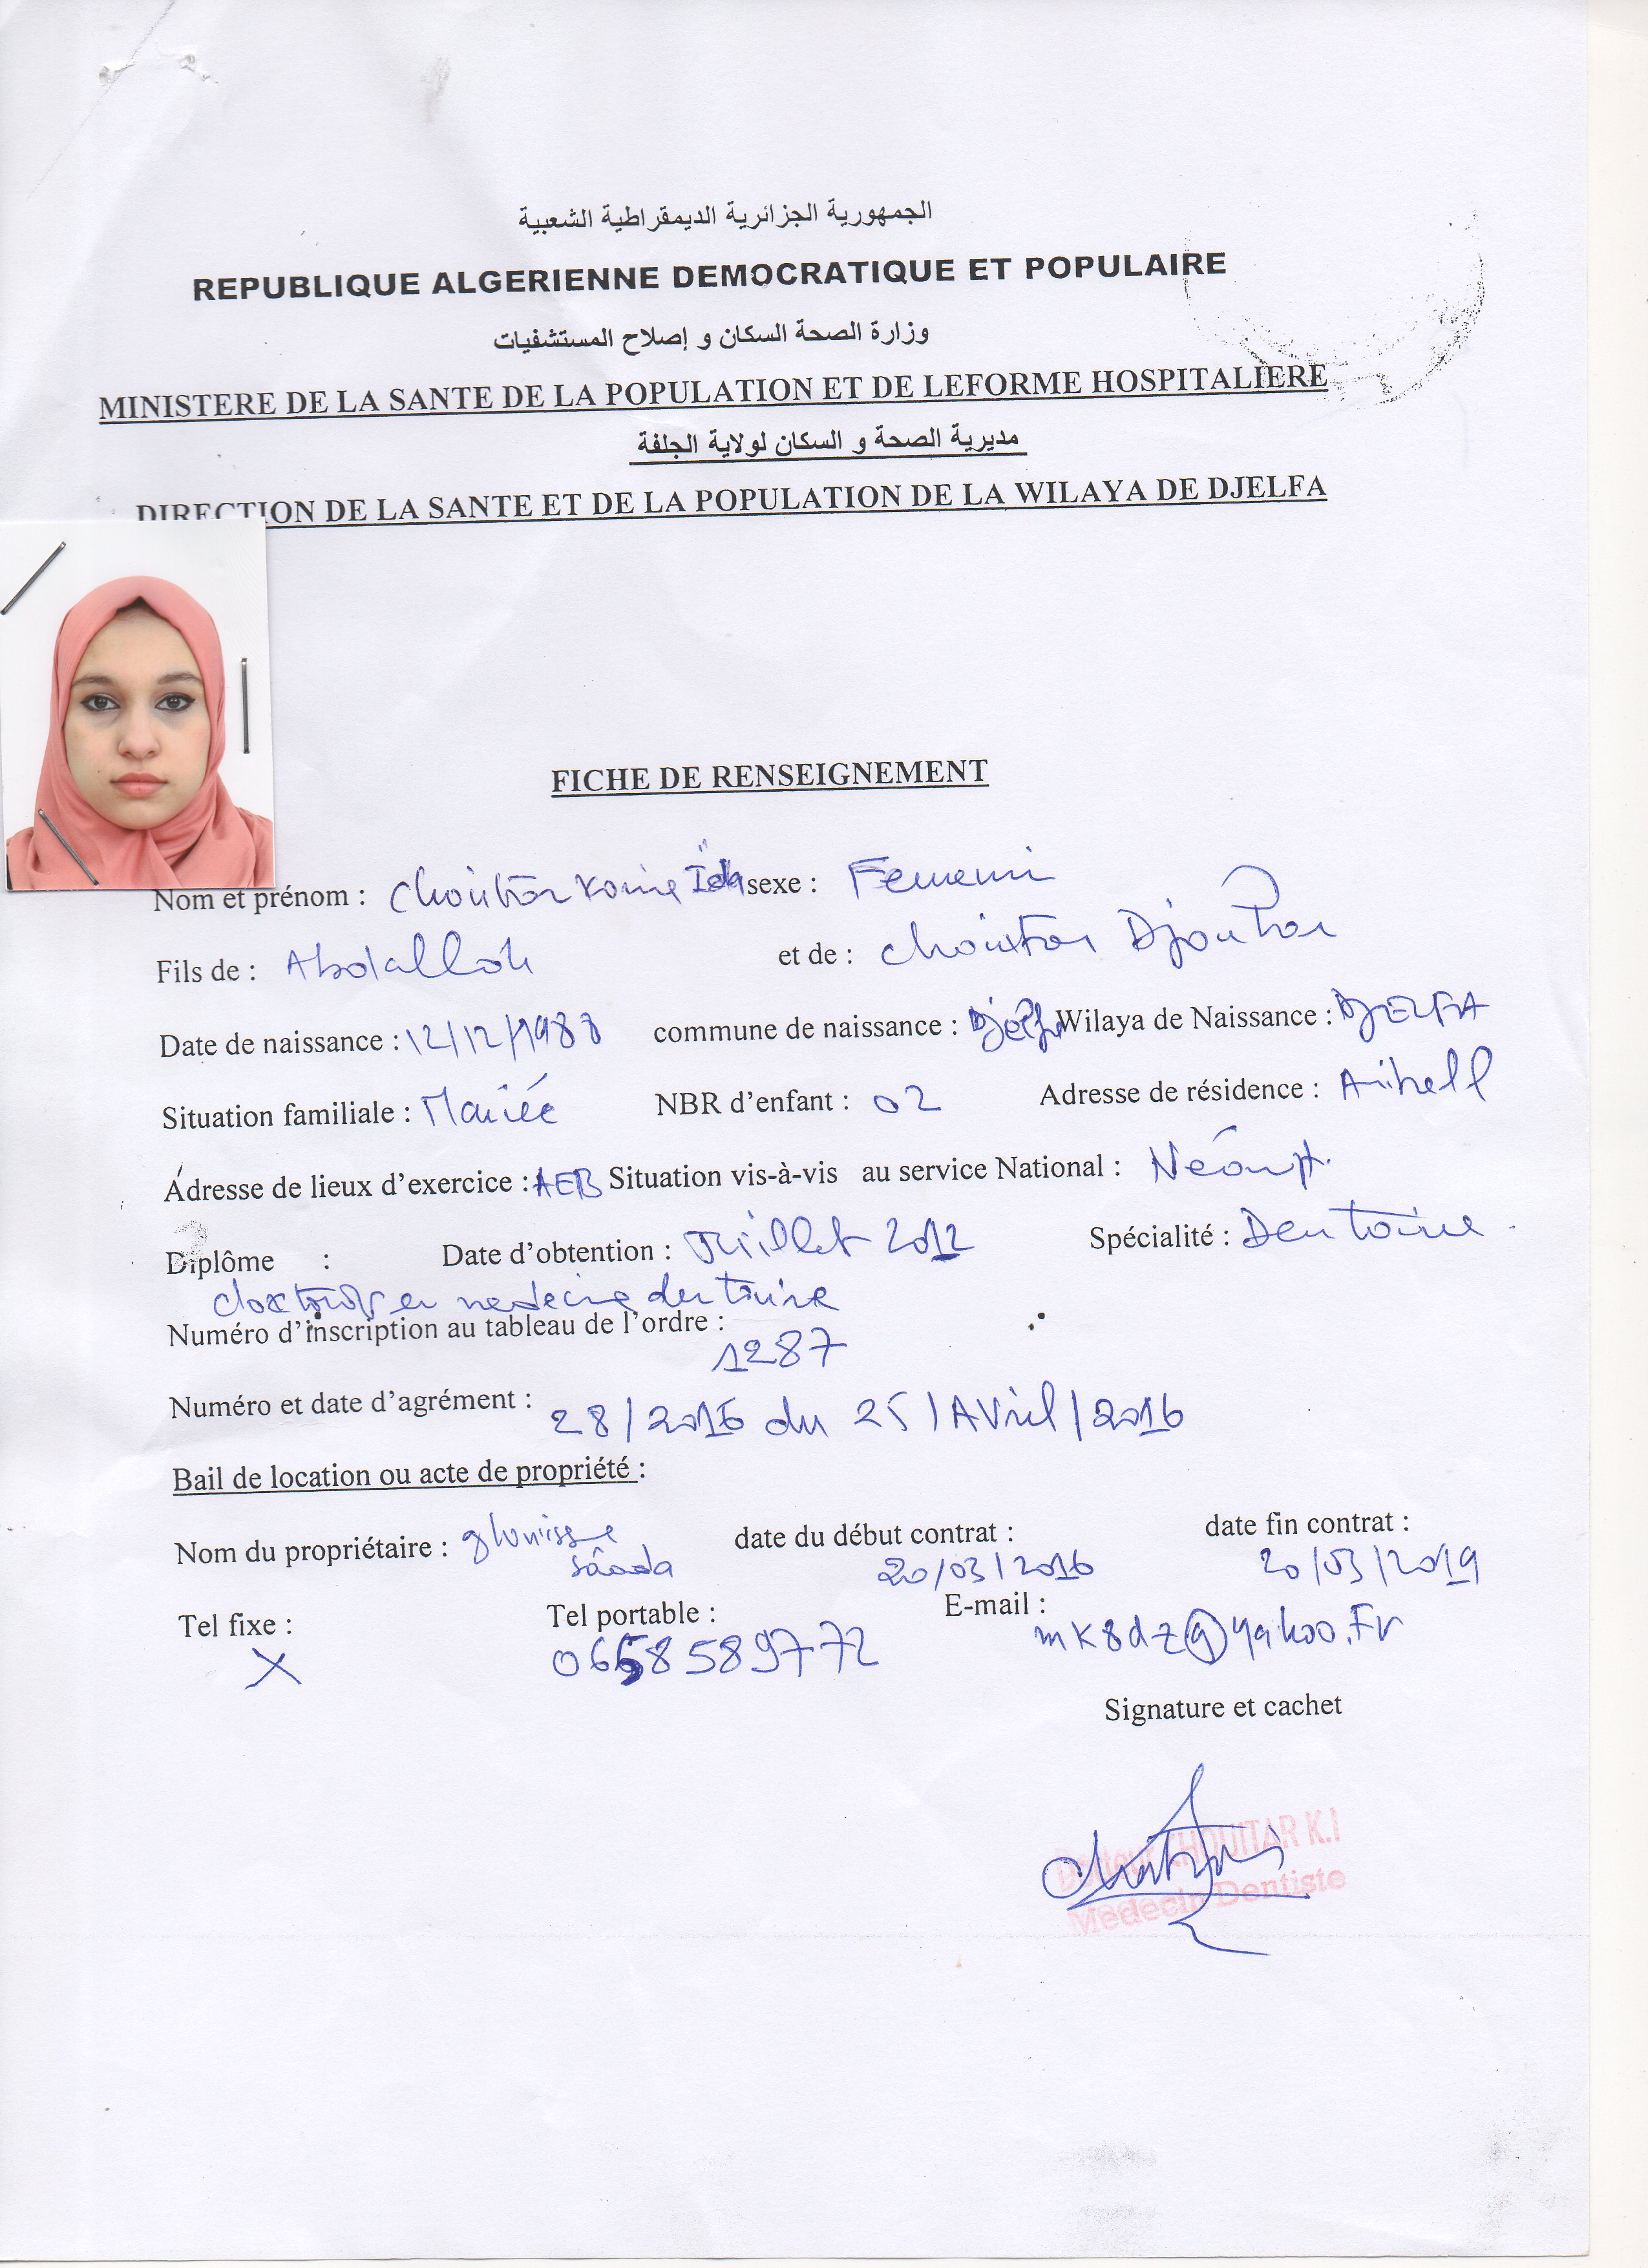 الجمهورية الجزائرية الديمقراطية الشعبية
REPUBLIQUE ALGERIENNE DEMOCRATIQUE ET POPULAIRE
وزارة الصحة السكان و إصلاح المستشفيات
MINISTERE DE LA SANTE DE LA POPULATION ET DE LEFORME HOSPITALIERE
مديرية الصحة و السكان لولاية الجلفة
DIRECTION DE LA SANTE ET DE LA POPULATION DE LA WILAYA DE DJELFA
FICHE DE RENSEIGNEMENT
Nom et prénom : sexe :
Fils de : Abdallah et de :
Date de naissance : 12/12/1988 commune de naissance : Djelfa Wilaya de Naissance : DJELFA
Situation familiale : Mariée NBR d’enfant : 02 Adresse de résidence :
Adresse de lieux d’exercice : AEB Situation vis-à-vis au service National : Néant.
Diplôme : Date d’obtention : Juillet 2012 Spécialité : Dentaire.
en medecine dentaire
Numéro d’inscription au tableau de l’ordre :
1287
Numéro et date d’agrément : 28/2016 du 25/AVril/2016
Bail de location ou acte de propriété :
Nom du propriétaire : date du début contrat : date fin contrat :
20/03/2016 20/03/2019
Tel fixe : Tel portable : E-mail :
X mk8dz@yahoo.Fr
Signature et cachet
Docteur K.I
Medecin Dentiste